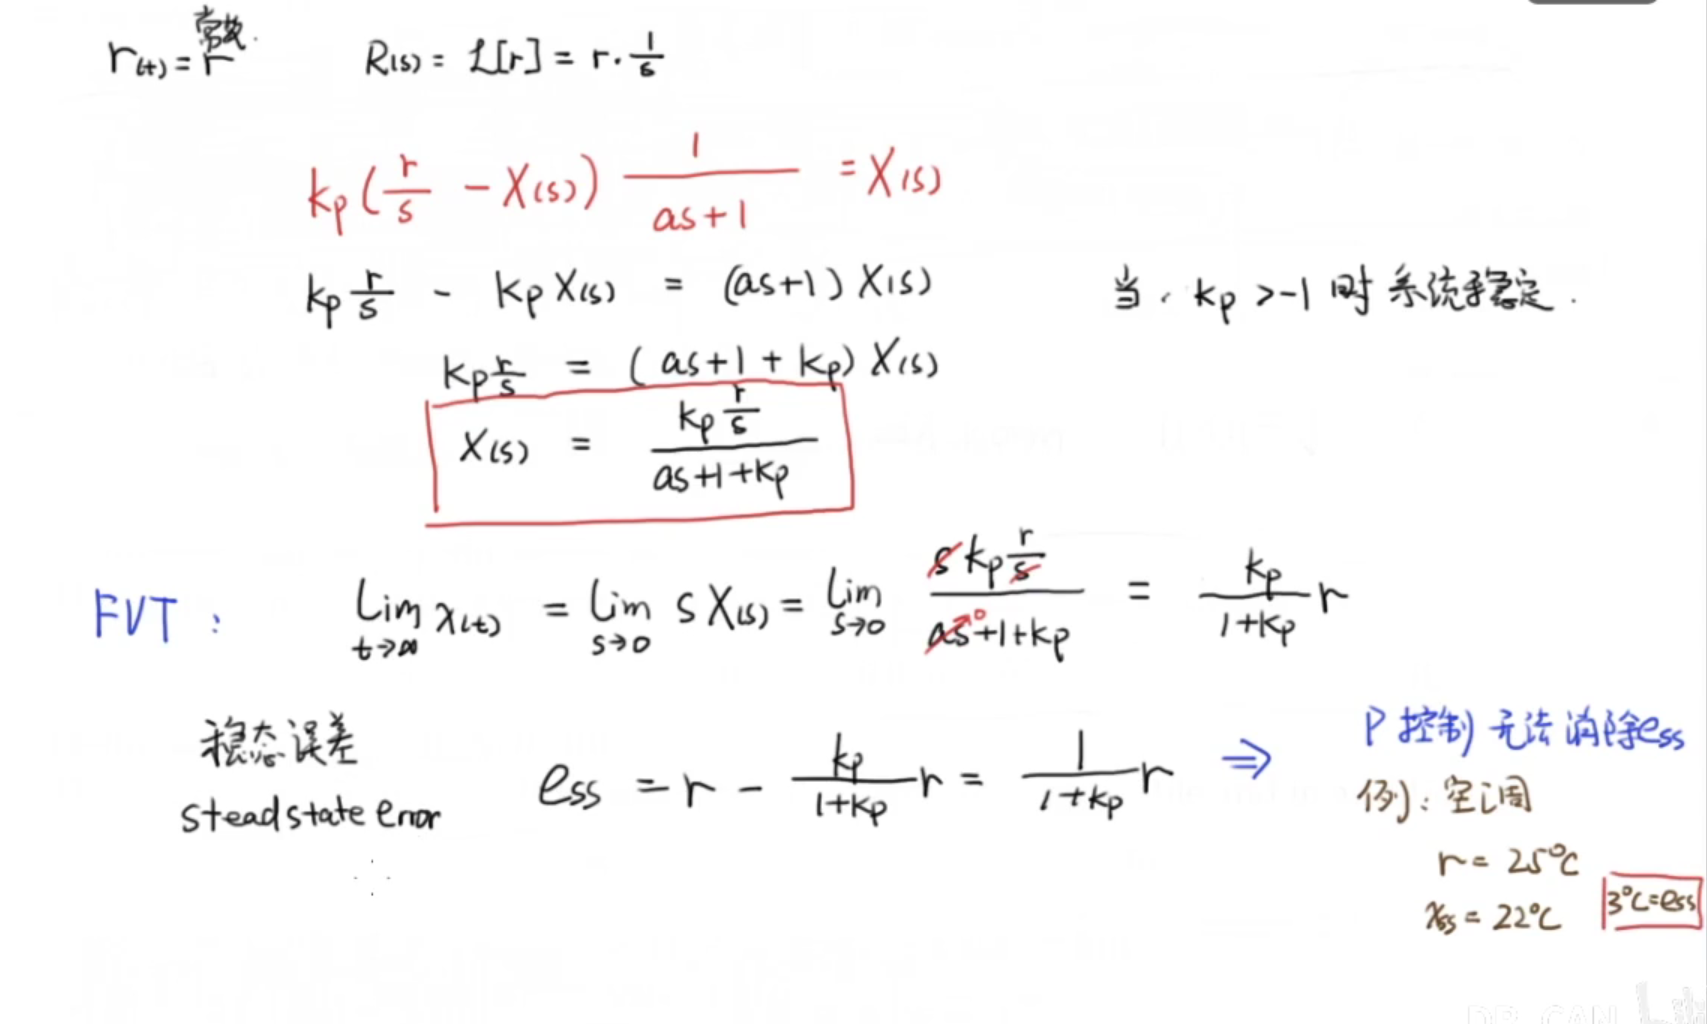 常数
r(t) = r R(s) = ℒ[r] = r · 1/s
kp(r/s − X(s)) 1/(as+1) = X(s)
kp r/s − kp X(s) = (as+1) X(s) 当 . kp >-1 时 系统稳定 .
kp r/s = (as+1+kp) X(s)
X(s) = kp r/s / (as+1+kp)
FVT : Lim t→∞ x(t) = Lim s→0 s X(s) = Lim s→0 s kp r/s / (as→0 +1+kp) = kp/(1+kp) r
稳态误差
steadstate error
ess = r − kp/(1+kp) r = 1/(1+kp) r ⇒ P 控制 无法 消除ess
例 : 空调
r = 25°C
xss = 22°C 3°C=ess
DR_CAN